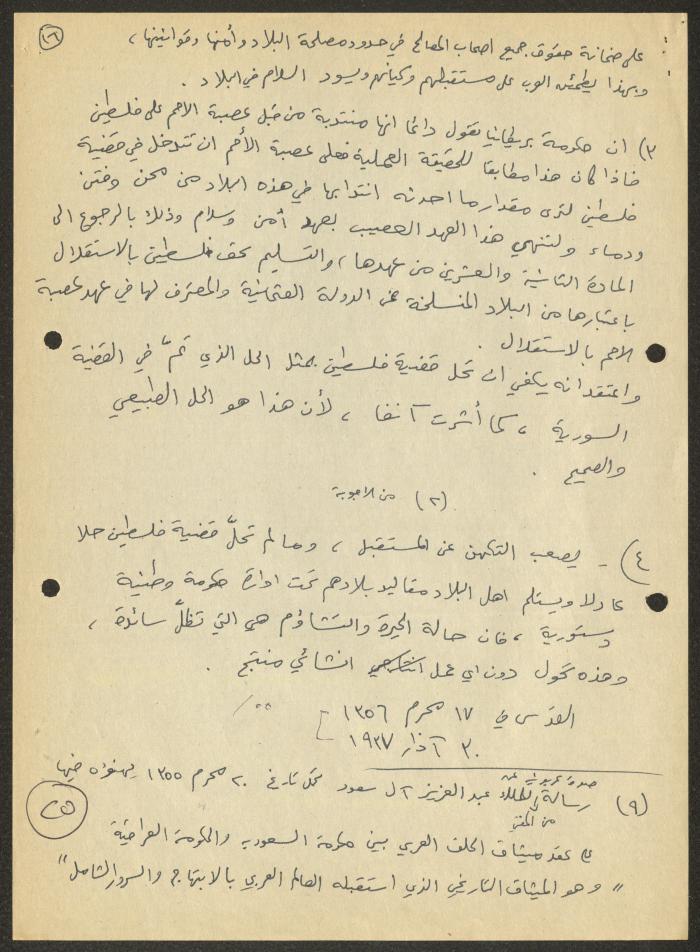 (١٦)
على ضمانة حقوق جميع اصحاب المصالح في حدود مصلحة البلاد وأمنها وقوانينها ،
وبهذا يطمئن العرب على مستقبلهم وكيانهم ويسود السلام في البلاد .
٣) ان حكومة بريطانيا تقول دائما انها منتدبة من قبل عصبة الامم على فلسطين
فاذا كان هذا مطابقا للحقيقة العملية فعلى عصبة الأمم ان تتدخل في قضية
فلسطين لترى مقدار ما احدثه انتدابها في هذه البلاد من محن وفتن
ودماء ولتنهي هذا العهد العصيب بعهد أمن وسلام وذلك بالرجوع الى
المادة الثانية والعشرين من عهدها ، والتسليم بحق فلسطين بالاستقلال
باعتبارها من البلاد المنسلخة عن الدولة العثمانية والمعترف لها في عهد عصبة
الامم بالاستقلال .
واعتقد انه يكفي ان تحل قضية فلسطين بمثل الحل الذي تمّ في القضية
السورية ، كما أشرت آنفا ، لأن هذا هو الحل الطبيعي
والصحيح .
(٢) من الاجوبة
٤) - يصعب التكهن عن المستقبل ، وما لم تحلّ قضية فلسطين حلا
عادلا ويستلم اهل البلاد مقاليد بلادهم تحت ادارة حكومة وطنية
دستورية ، فان حالة الحيرة والتشاؤم هي التي تظلّ سائدة ،
وهذه تحول دون اي عمل انشائي منتج .
القدس في ١٧ محرم ١٣٥٦
٣٠ آذار ١٩٣٧
(٩) رسالة الملك عبد العزيز آل سعود بتاريخ ٢٠ محرم ١٣٥٥ يهنؤه فيها
من المفتي
في عقد ميثاق الحلف العربي بين حكومة السعودية والحكومة العراقية
" وهو الميثاق التاريخي الذي استقبله العالم العربي بالابتهاج والسرور الشامل "
(٢٥)